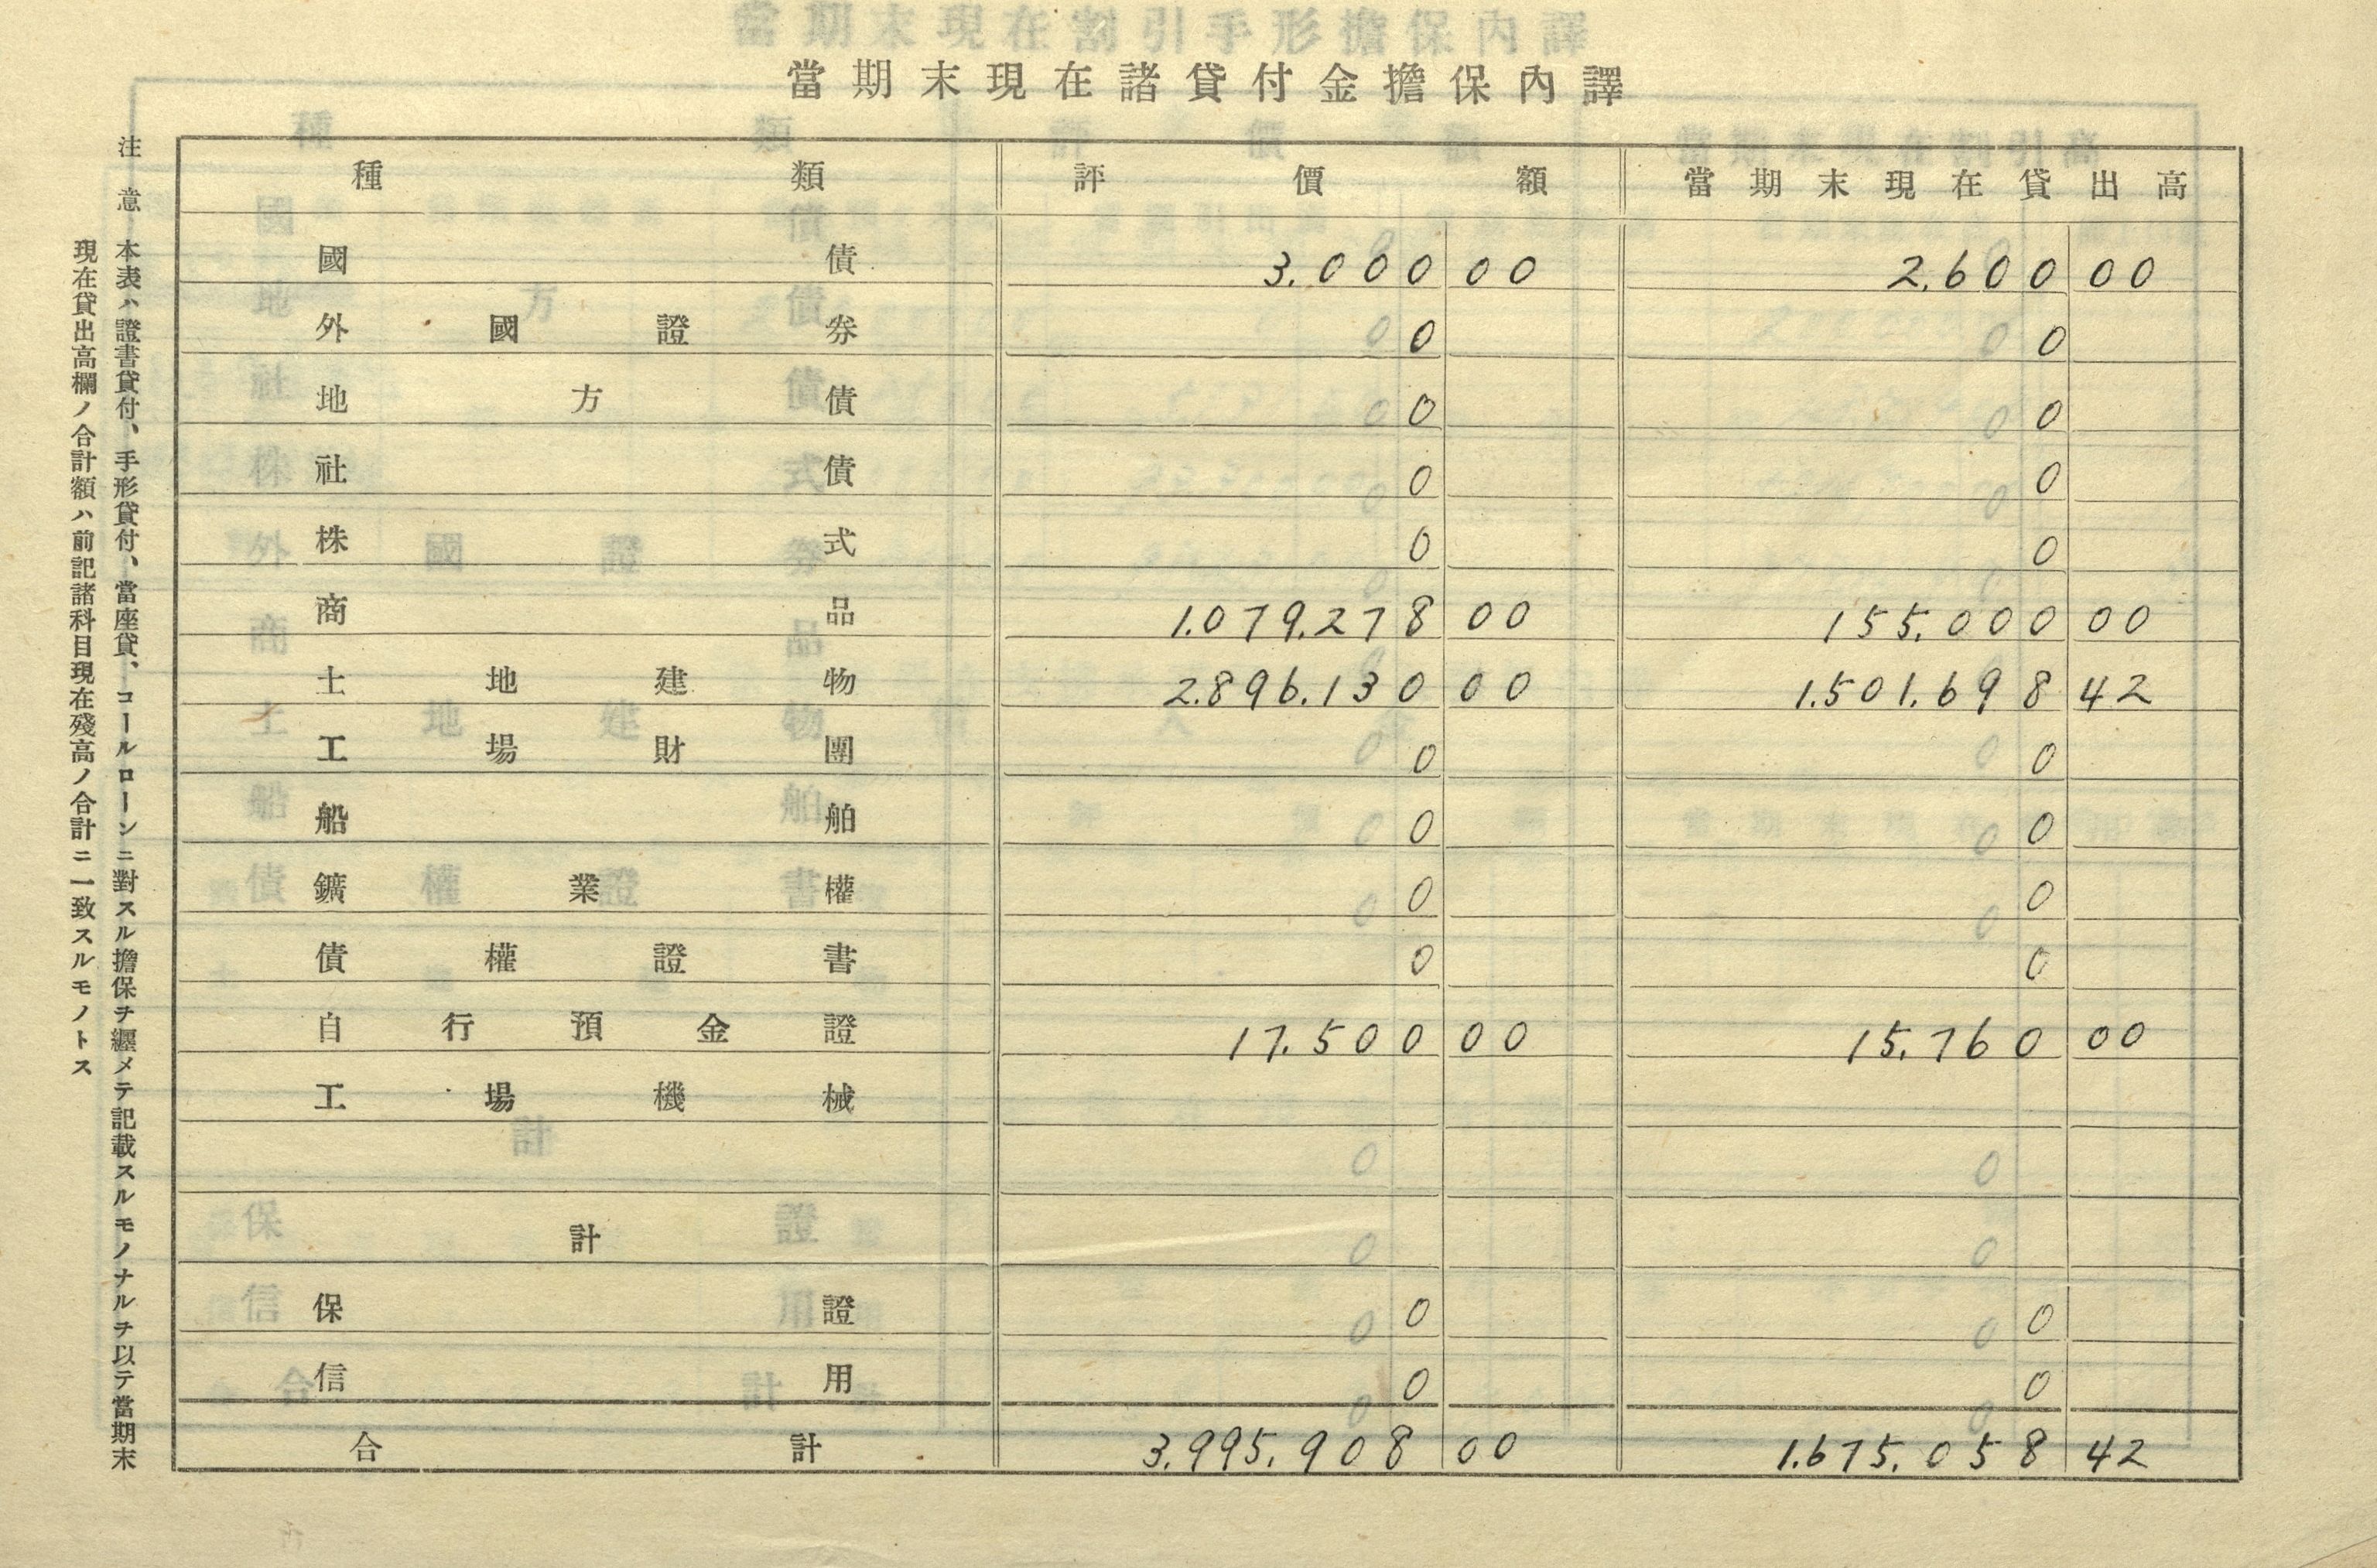 當期末現在諸貸付金擔保內譯
種類 評價額 當期末現在貸出高
國債 3.000 00 2.600 00
外國證券 0 0
地方債 0 0
社債 0 0
株式 0 0
商品 1.079.278 00 155.000 00
土地建物 2.896.130 00 1.501.698 42
工場財團 0 0
船舶 0 0
鑛業權 0 0
債權證書 0 0
自行預金證 17.500 00 15.760 00
工場機械
計
保證 0 0
信用 0 0
合計 3.995.908 00 1.675.058 42
注意 本表ハ證書貸付、手形貸付、當座貸、コールローンニ對スル擔保ヲ纒メテ記載スルモノナルヲ以テ當期末
現在貸出高欄ノ合計額ハ前記諸科目現在殘高ノ合計ニ一致スルモノトス